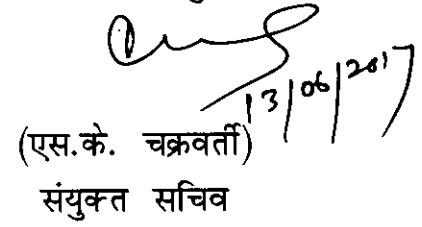 13/06/2017
(एस.के. चक्रवर्ती)
संयुक्त सचिव